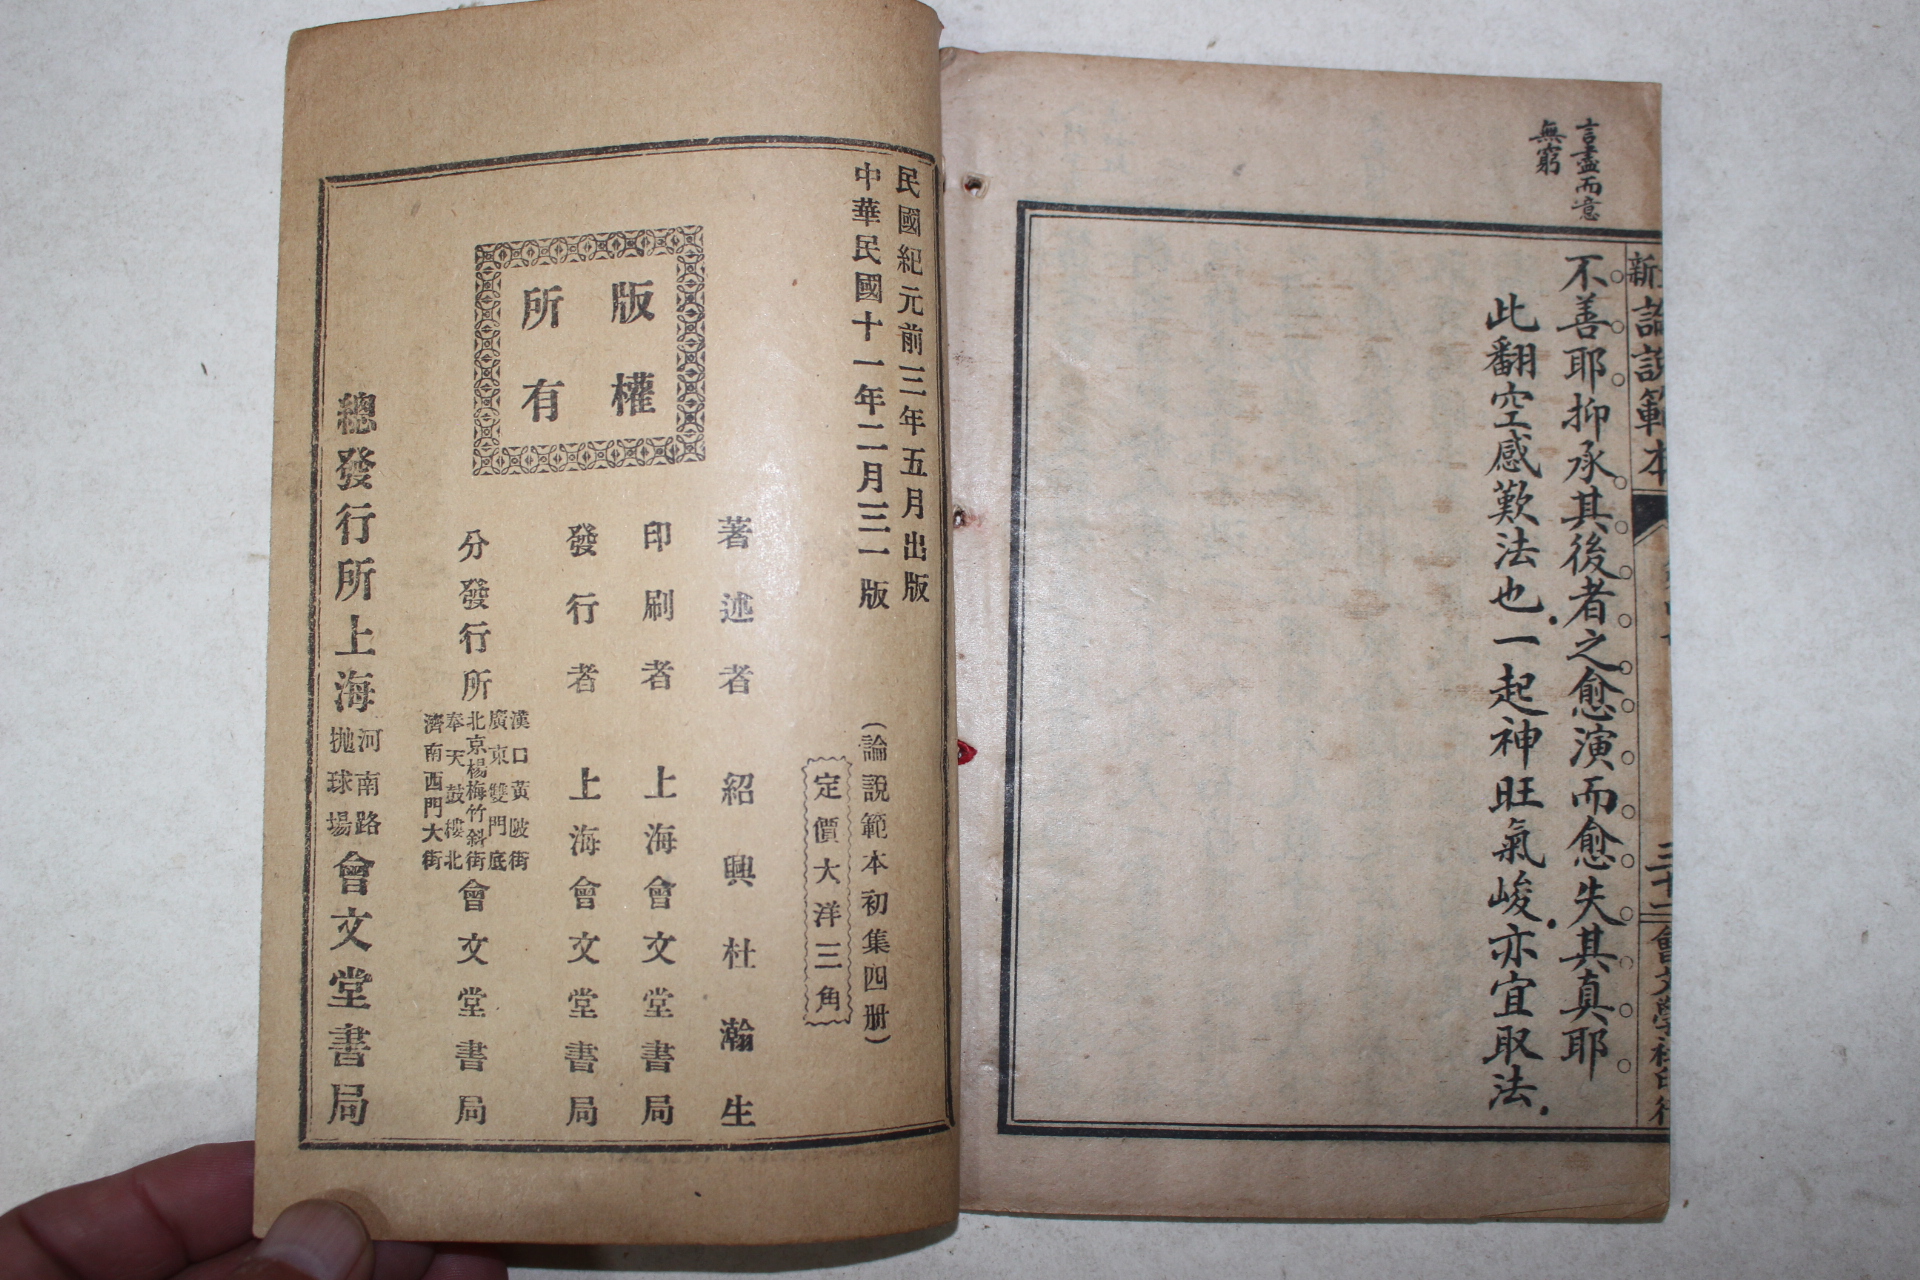 言盡而意
無窮
論說範本
三十二
會文學社印行
不善耶抑承其後者之愈演而愈失其真耶
此翻空感歎法也一起神旺氣峻亦宜取法
民國紀元前三年五月出版
中華民國十一年二月三一版
(論說範本初集四册)
定價大洋三角
版權
所有
著述者 紹興杜瀚生
印刷者 上海會文堂書局
發行者 上海會文堂書局
分發行所
漢口黃陂街
廣東雙門底
北京楊梅竹斜街
奉天鼓樓北
濟南西門大街
會文堂書局
總發行所上海
河南路
拋球場
會文堂書局